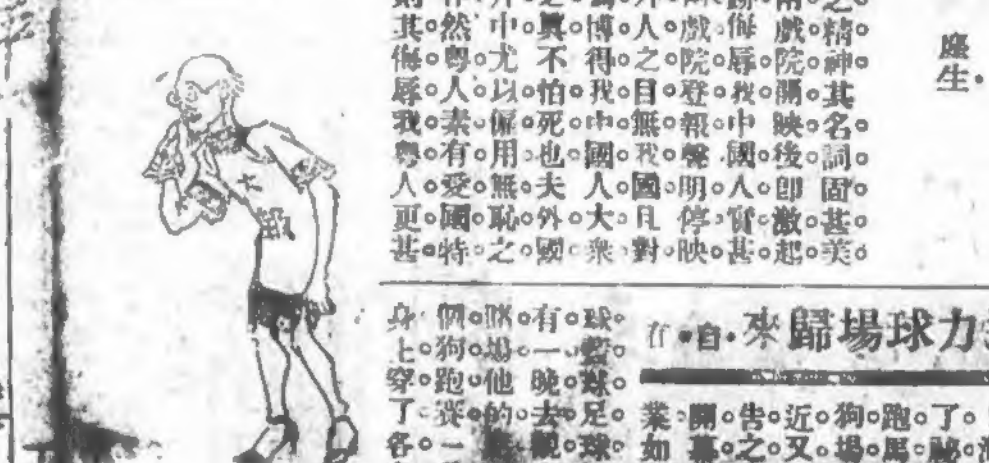 塵生
精神其名詞固甚美
戲院開映後即激起
侮辱我中國人實甚
戲院登報聲明停映
人之目無我國凡對
博得我中國人大衆
眞不怕死也夫外國
中尤以僱用無恥之
然粵人素有愛國特
其侮辱我粵人更甚
力球場歸來
自在
了祕
跑馬
狗場
近又
告之
開幕
業如
球籃球足球
有一晚去觀
場他的
個狗跑賽一
身上穿了各
大